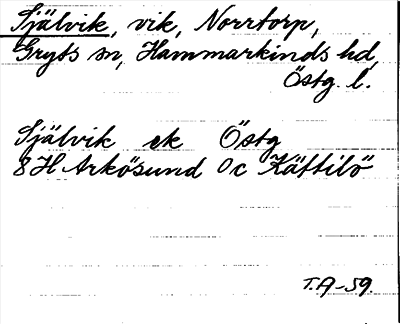 Självik, vik, Norrtorp,
Gryts sn, Hammarkinds hd,
Östg. l.
Självik ek Östg
8H Arkösund 0c Kättilö
T.A-59.